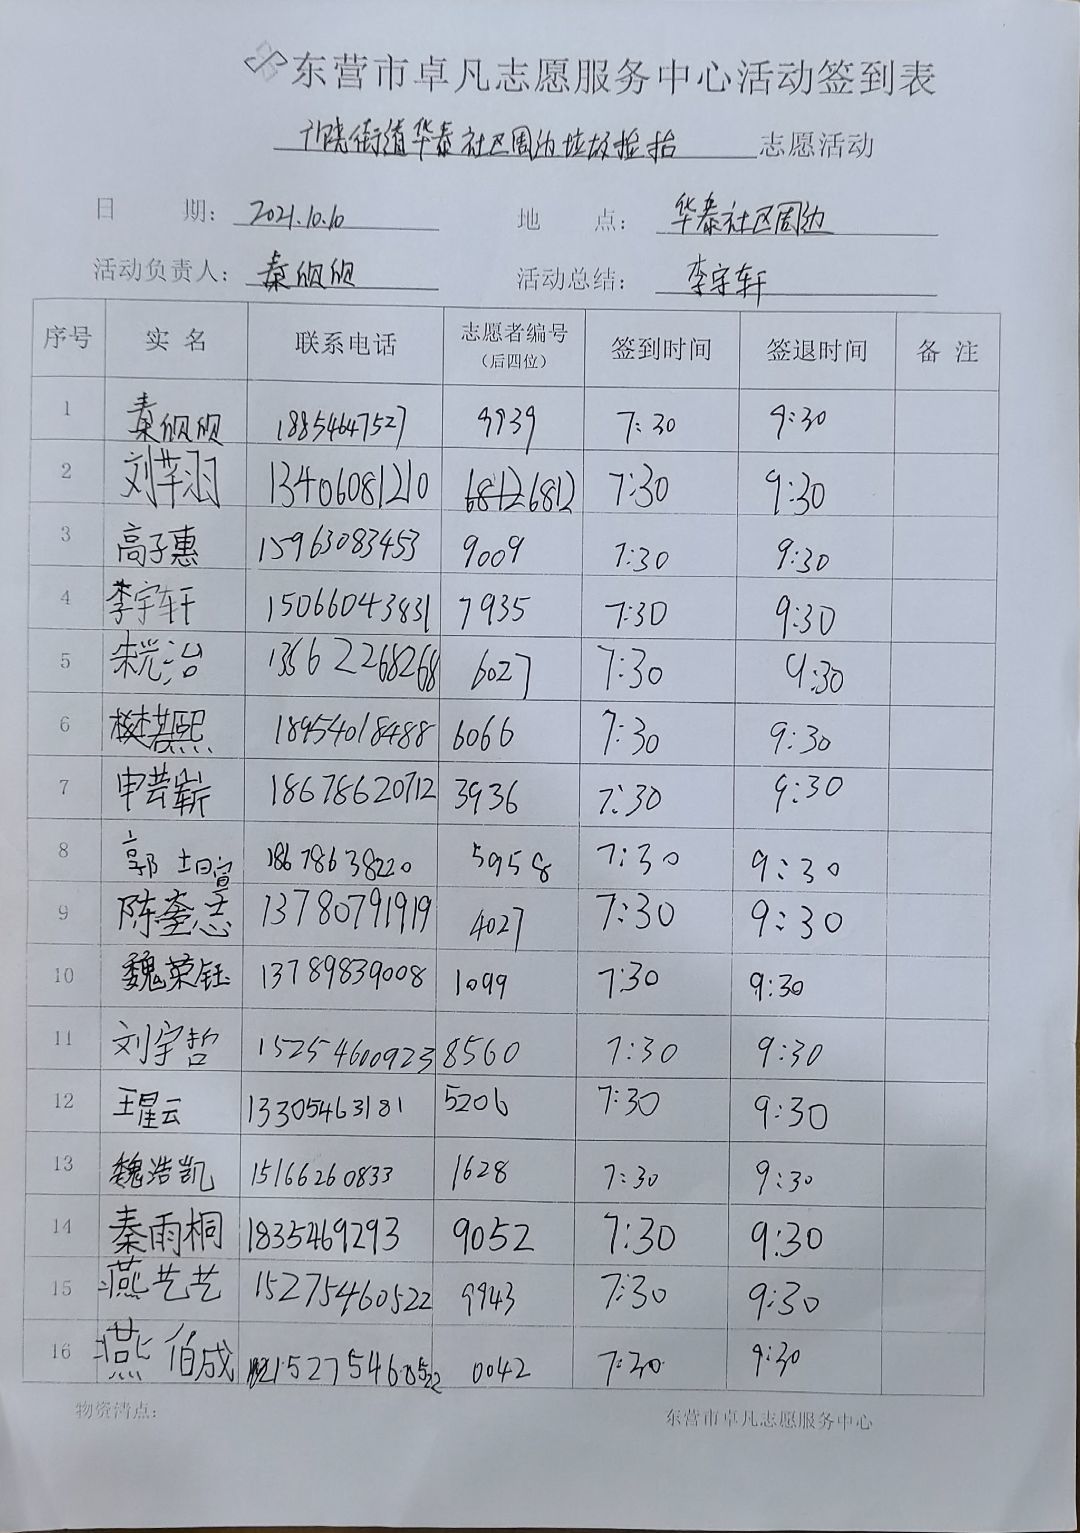 东营市卓凡志愿服务中心活动签到表
街道华泰社区周边垃圾捡拾 志愿活动
日 期: 2021.10.10 地 点: 华泰社区周边
活动负责人: 秦 活动总结: 李宇轩
序号 实 名 联系电话 志愿者编号 (后四位) 签到时间 签退时间 备 注
1 秦 18854647527 9939 7:30 9:30
2 刘芊羽 13406081210 6812 7:30 9:30
3 高子惠 15963083453 9009 7:30 9:30
4 李宇轩 15066043831 7935 7:30 9:30
5 朱治 6027 7:30 9:30
6 樊慕熙 18954018488 6066 7:30 9:30
7 申芸崭 18678620712 3936 7:30 9:30
8 郭 18678638220 5958 7:30 9:30
9 陈奎志 13780791919 4027 7:30 9:30
10 魏荣钰 13789839008 1099 7:30 9:30
11 刘宇哲 15254600923 8560 7:30 9:30
12 王星云 13305463181 5206 7:30 9:30
13 魏浩凯 15166260833 1628 7:30 9:30
14 秦雨桐 1835469293 9052 7:30 9:30
15 燕艺艺 15275460522 9943 7:30 9:30
16 燕伯成 15275460522 0042 7:30 9:30
物资清点: 东营市卓凡志愿服务中心